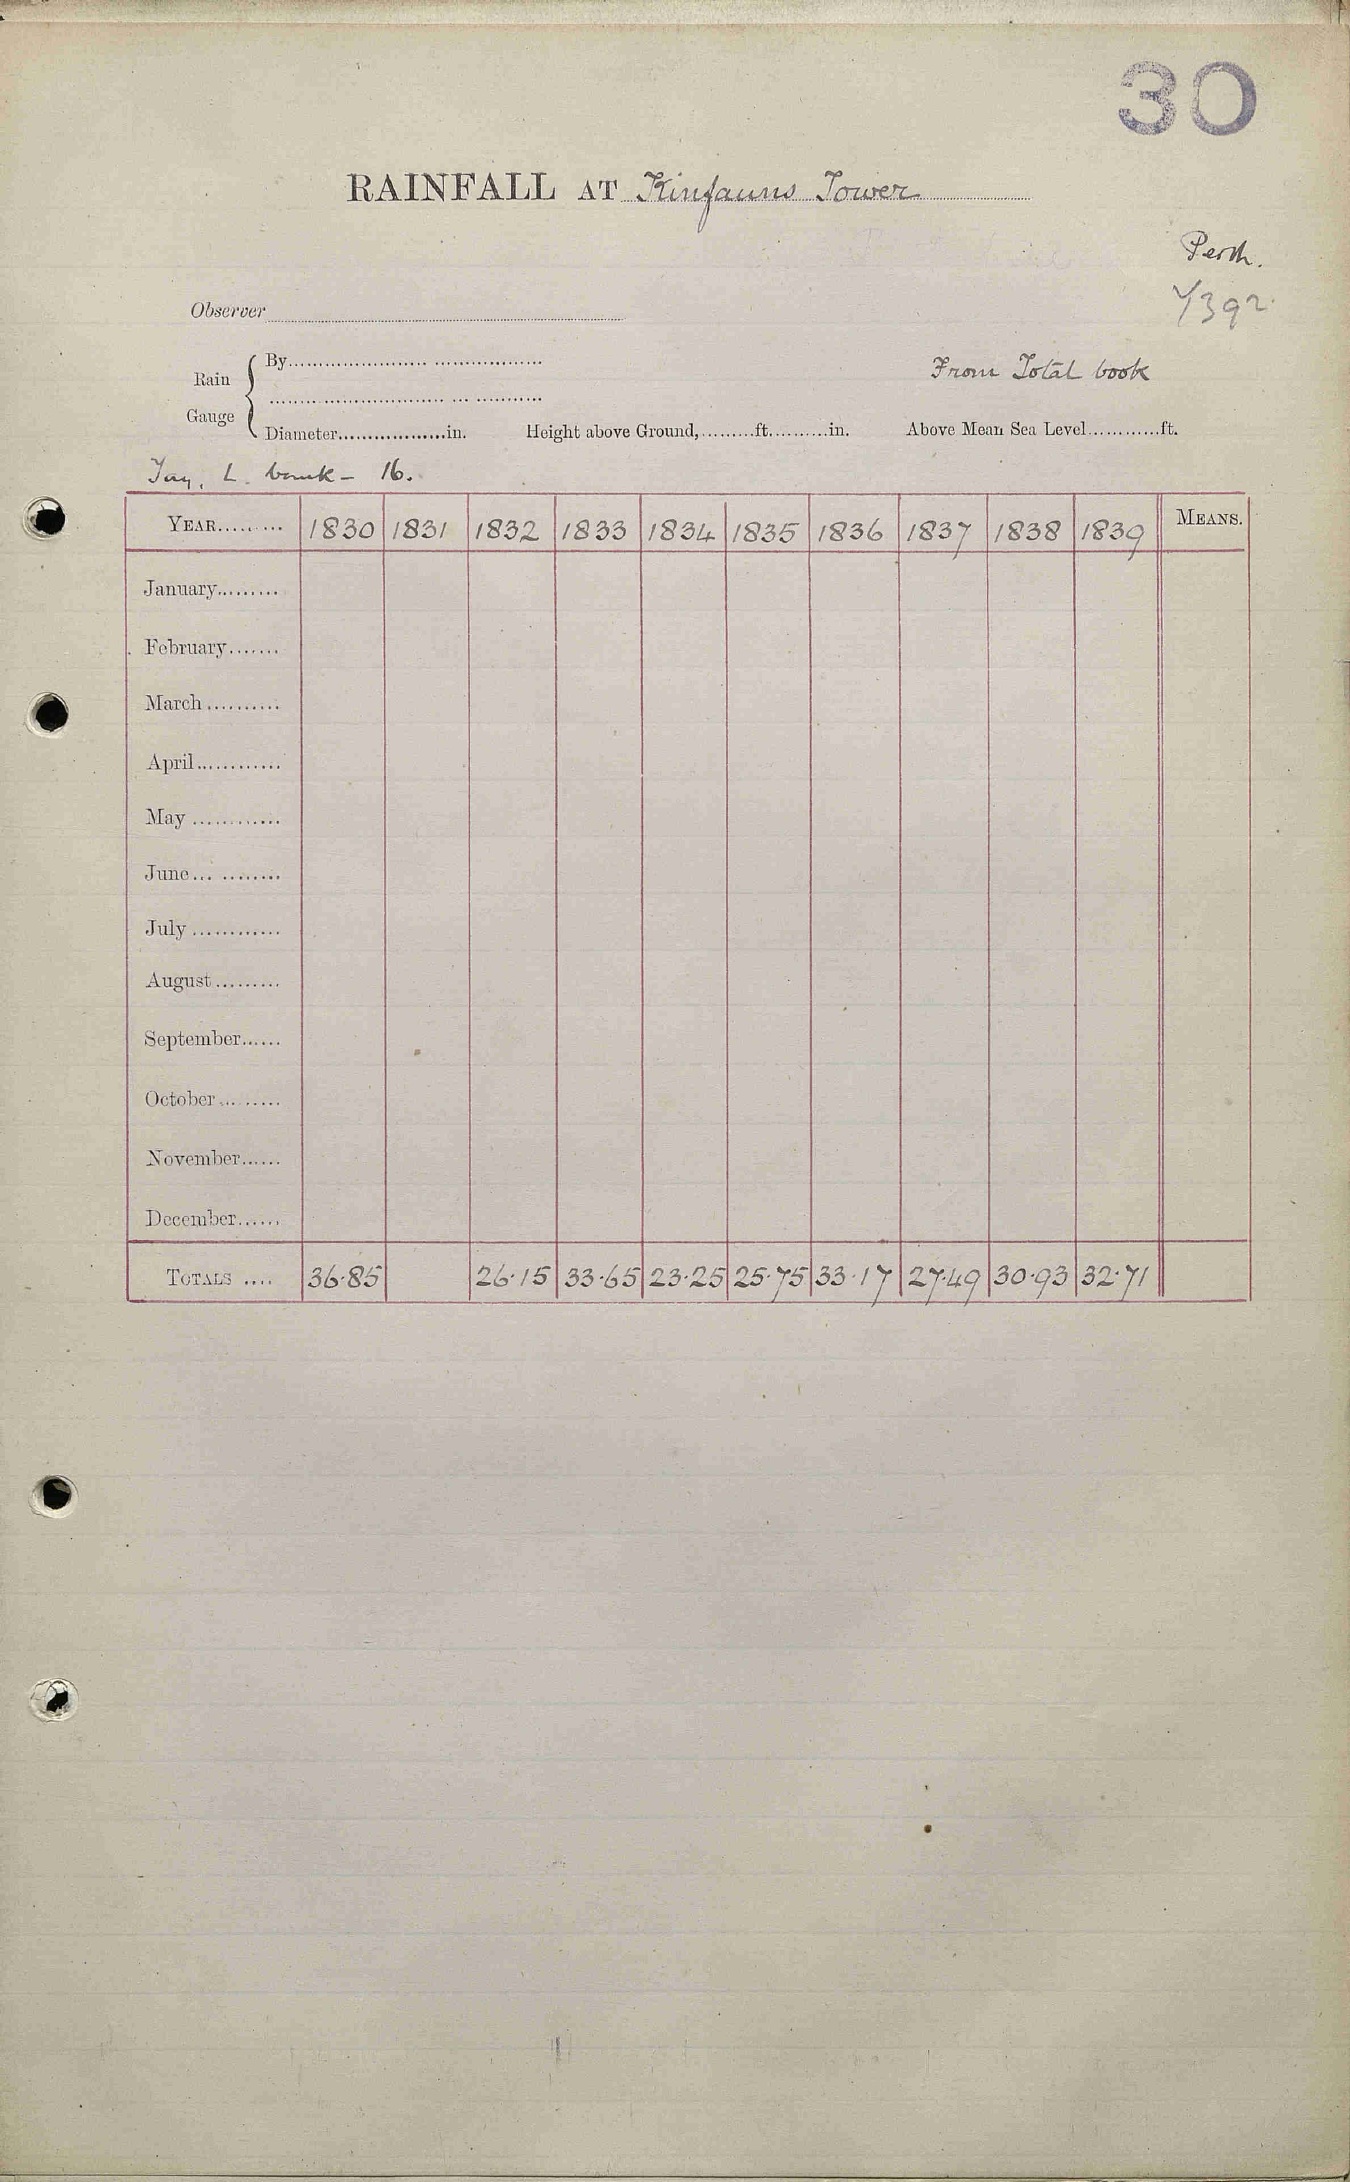 30
RAINFALL AT Kinfauns Tower
Perth.
Observer
Rain Gauge
By
From Total book
Diameter..................in. Height above Ground,.........ft..........in. Above Mean Sea Level............ft.
Tay, L. bank - 16.
YEAR......... 1830 1831 1832 1833 1834 1835 1836 1837 1838 1839 MEANS.
January.........
February.......
March..........
April............
May............
June...........
July............
August.........
September......
October.........
November......
December......
TOTALS .... 36·85 26·15 33·65 23·25 25·75 33·17 27·49 30·93 32·71